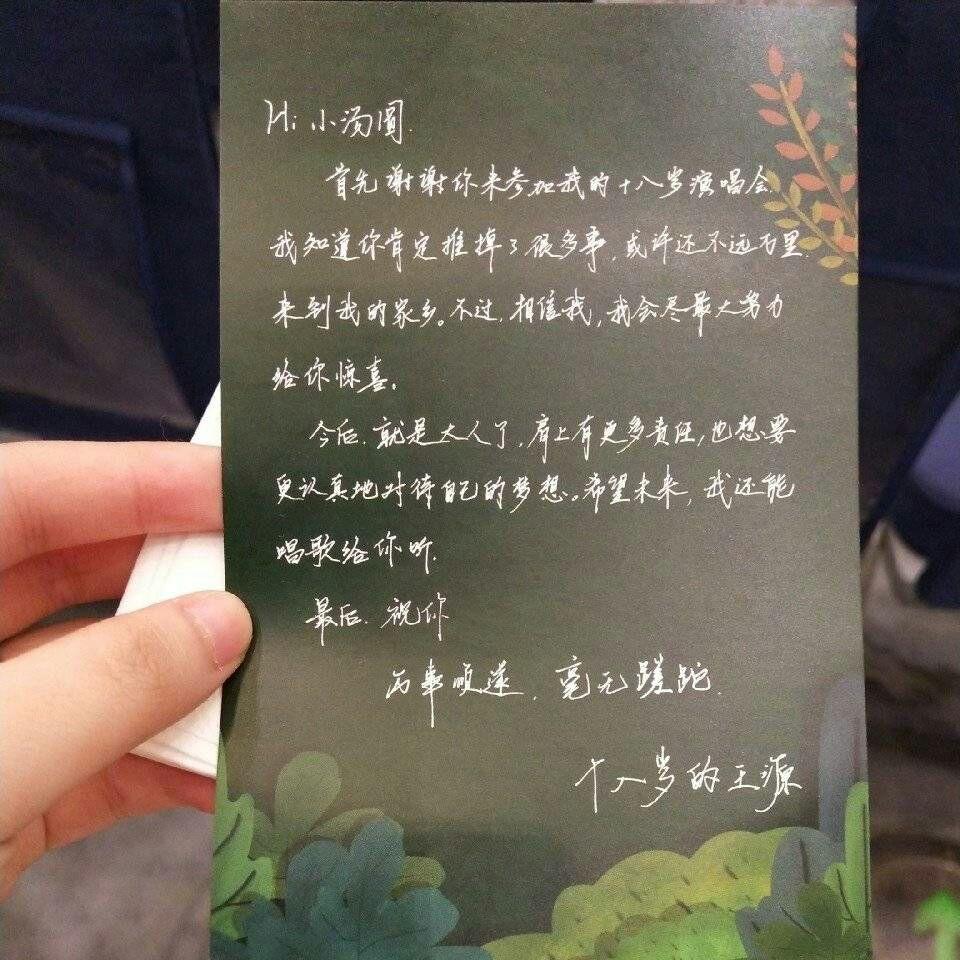 Hi 小汤圆.
首先谢谢你来参加我的十八岁演唱会.
我知道你肯定推掉了很多事,或许还不远万里.
来到我的家乡。不过,相信我,我会尽最大努力
给你惊喜。
今后.就是大人了,肩上有更多责任,也想要
更认真地对待自己的梦想。希望未来,我还能
唱歌给你听.
最后.祝你
万事顺遂.毫无蹉跎.
十八岁的王源